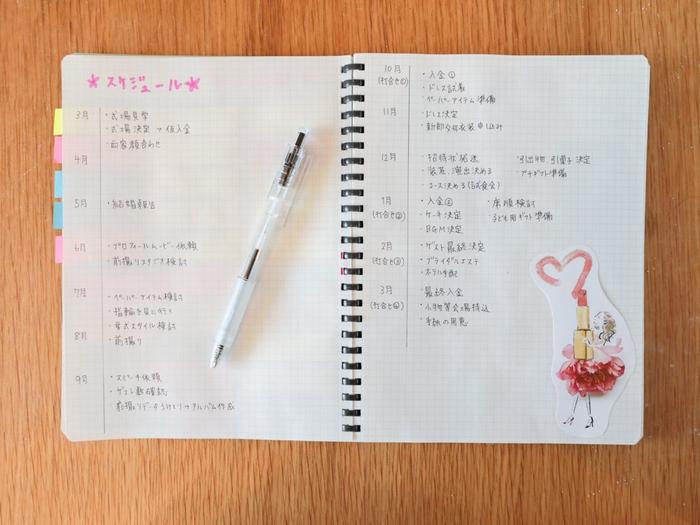 スケジュール
3月
・式場見学
・式場決定 → 仮入金
・両家顔合わせ
4月
5月
・結婚報告
6月
・プロフィールムービー依頼
・前撮りスタジオ検討
7月
・ペーパーアイテム検討
・指輪を見に行く
・挙式スタイル検討
8月
・前撮り
9月
・スピーチ依頼
・ゲスト数確認
・前撮りデータうけとり→アルバム作成
10月
(打合せ①)
・入金①
・ドレス試着
・ペーパーアイテム準備
11月
・ドレス決定
・新郎衣装申し込み
12月
・招待状発送
・装花、演出決める
・コース決める(試食会)
・引出物、引菓子決定
・プチギフト準備
1月
(打合せ②)
・入金②
・ケーキ決定
・BGM決定
・席順検討
・子ども用ギフト準備
2月
(打合せ③)
・ゲスト最終決定
・ブライダルエステ
・ホテル手配
3月
(打合せ④)
・最終入金
・小物等会場持込
・手紙の用意